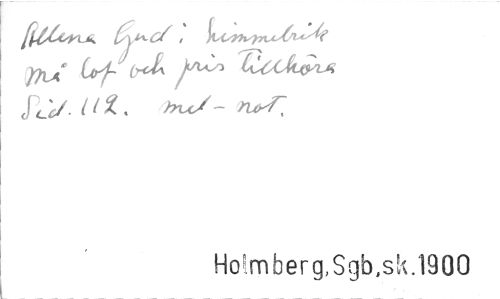 Allena Gud i himmelrik
må lof och pris tillhöra
Sid. 112. mel-not.
Holmberg,Sgb,sk.1900